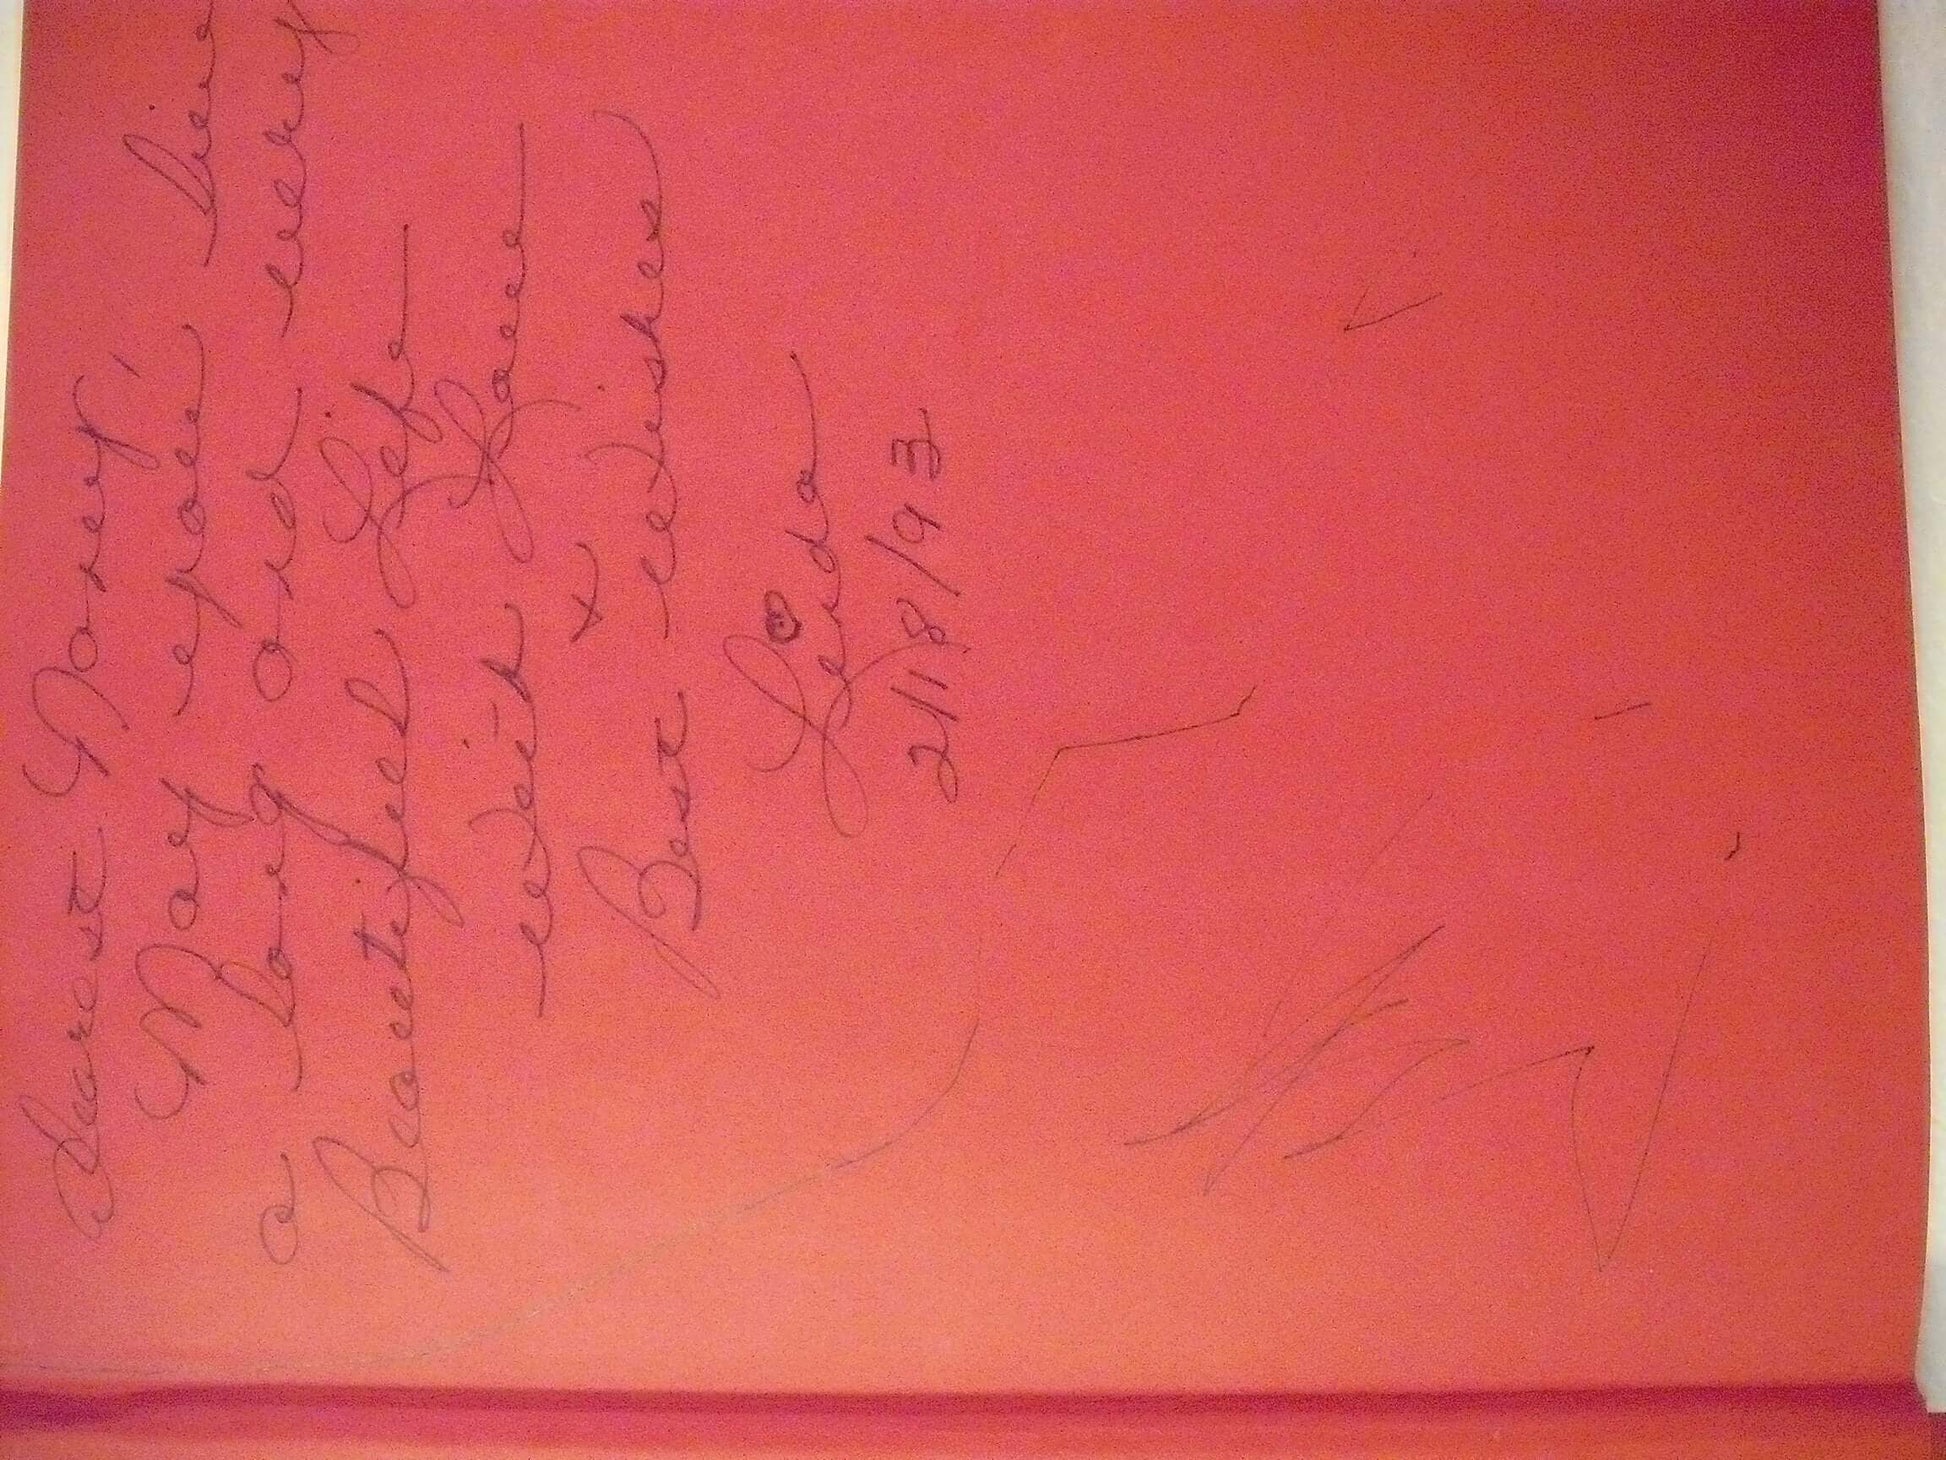 Dearest Doney,
May you live
a long and very
Beautiful Life
with Love
x
Best wishes
Leida
2/18/93